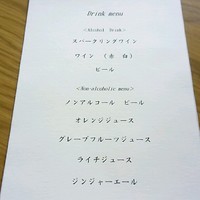 Drink menu
<Alcohol Drink>
スパークリングワイン
ワイン （赤 白）
ビール
<Non-alcoholic menu>
ノンアルコール ビール
オレンジジュース
グレープフルーツジュース
ライチジュース
ジンジャーエール